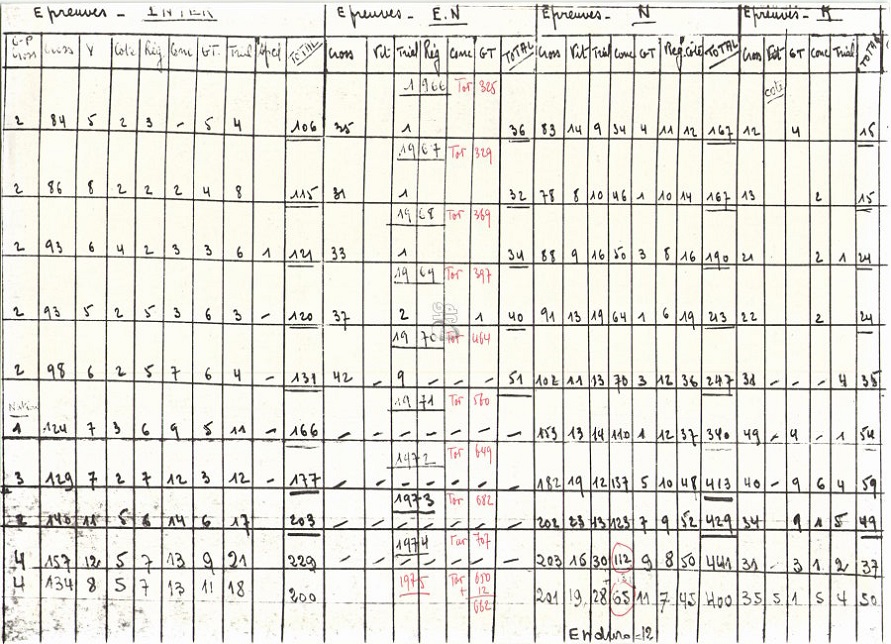 Epreuves - INTER Epreuves - E.N Epreuves - N Epreuves - R
G-P Cross Cross V Cote Rég Conc GT. Trial Spéci TOTAL Cross Vit Trial Rég Conc GT TOTAL Cross Vit Trial Conc GT Rég. Cote TOTAL Cross Vit GT Conc Trial TOTAL
1966 Tor 325 cote
2 84 5 2 3 - 5 4 106 35 1 36 83 14 9 34 4 11 12 167 12 4 16
1967 Tor 329
2 86 8 2 2 2 4 8 115 31 1 32 78 8 10 46 1 10 14 167 13 2 15
1968 Tor 369
2 93 6 4 2 3 3 6 1 121 33 1 34 88 9 16 50 3 8 16 190 21 2 1 24
1969 Tor 397
2 93 5 2 5 3 6 3 - 120 37 2 1 40 91 13 19 64 1 6 19 213 22 2 24
1970 Tor 464
2 98 6 2 5 7 6 4 - 131 42 - 9 - - - 51 102 11 13 70 3 12 36 247 31 - - - 4 35
1971 Tor 560
1 124 7 3 6 9 5 11 - 166 - - - - - - - 153 13 14 110 1 12 37 340 49 - 4 - 1 54
1972 Tor 649
3 129 7 2 7 12 3 12 - 177 - - - - - - - 182 19 12 137 5 10 48 413 40 - 9 6 4 59
1973 Tor 682
2 140 11 5 6 14 6 17 203 - - - - - - - 202 23 13 123 7 9 52 429 34 9 1 5 49
1974 Tor 707
4 157 12 5 7 13 9 21 229 - - - - - - - 203 16 30 112 9 8 50 441 31 - 3 1 2 37
4 134 8 5 7 13 11 18 200 1975 Tor 650 + 12 662 201 19 28 65 11 7 45 400 35 5 1 5 4 50
Enduro = 12